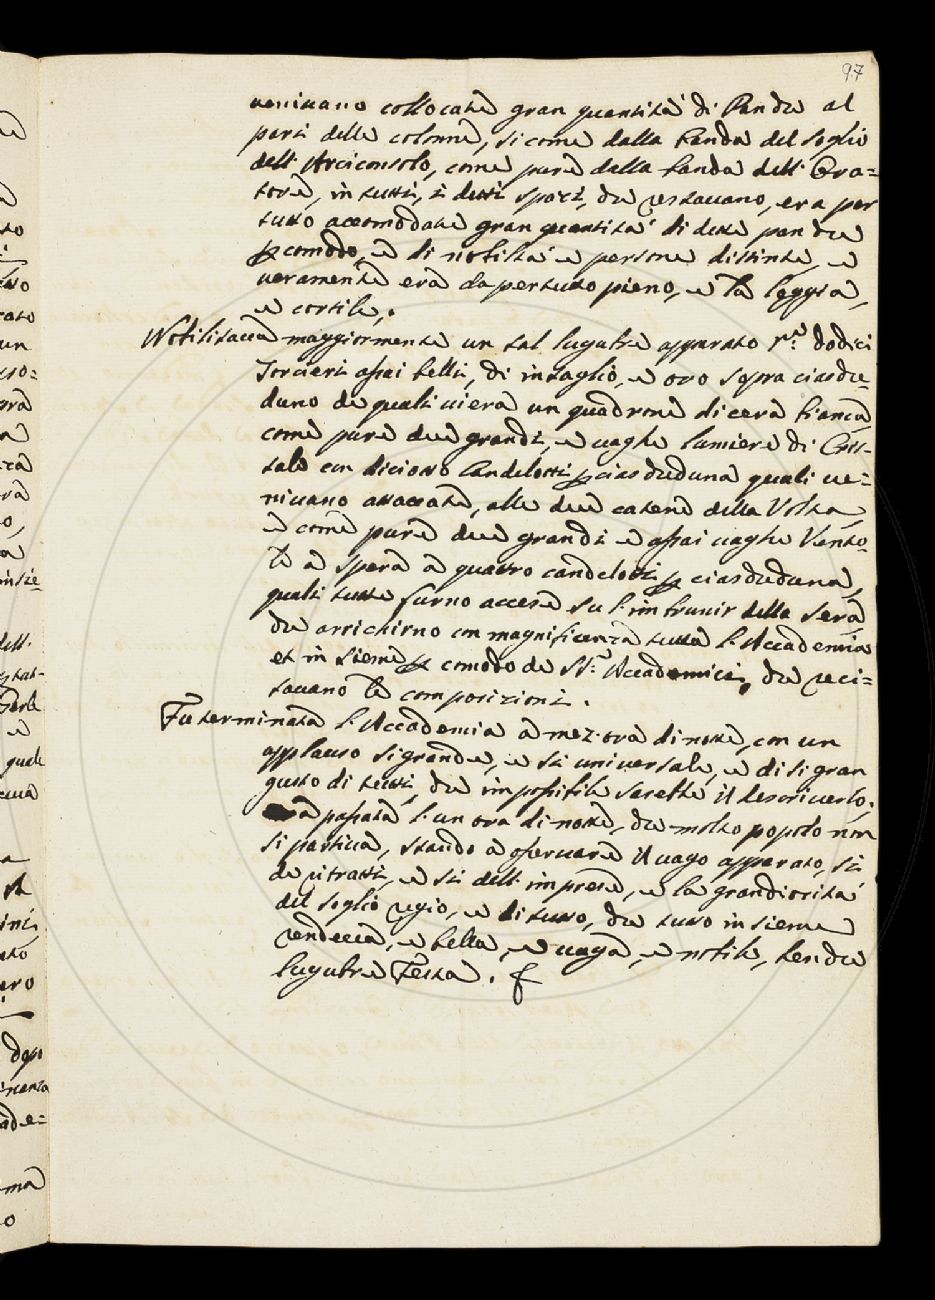 97
venivano collocate gran quantità di Panche al
pari delle colonne, si come dalla banda del soglio
dell' Arciconsolo, come pure dalla banda dell' Ora=
tore, in tutti, i detti spazi, che restavano, era per
tutto accomodate gran quantità di dette panche
p comodo, e di nobiltà e persone distinte, e
veramente era da per tutto pieno, e la loggia,
e cortile,.
Nobilitava maggiormente un tal lugubre apparato dodici
Torcieri assai belli, di intaglio, e oro sopra ciasche=
duno de quali viera un quadrone di cera bianca
come pure due grandi, e vaghe lumiere di Cris-
tallo con diciotto Candelotti p ciascheduna quali ve=
nivano attaccate, alle due catene della Volta,
e come pure due grandi e assai vaghe Vento-
le a spera a quattro candelotti p ciascheduna,
quali tutte furno accese su l' imbrunir della sera,
che arrichirno con magnificenza tutta l' Accademia
et in sieme p comodo de SS.ri Accademici, che reci=
tavano le composizioni.
Fu terminata l' Accademia a mez' ora di notte, con un
applauso si grande, e si universale, e di si gran
gusto di tutti, che impossibile sarebbe il descriverlo,
era passata l' un ora di notte, che molto popolo non
si partiva, stando a osservare il vago apparato, si
de ritratti, e si dell' imprese, e la grandiosità
del soglio regio, e di tutto, che tutto insieme
rendeva, e bella, e vaga, e nobile, benche
lugubre Festa.